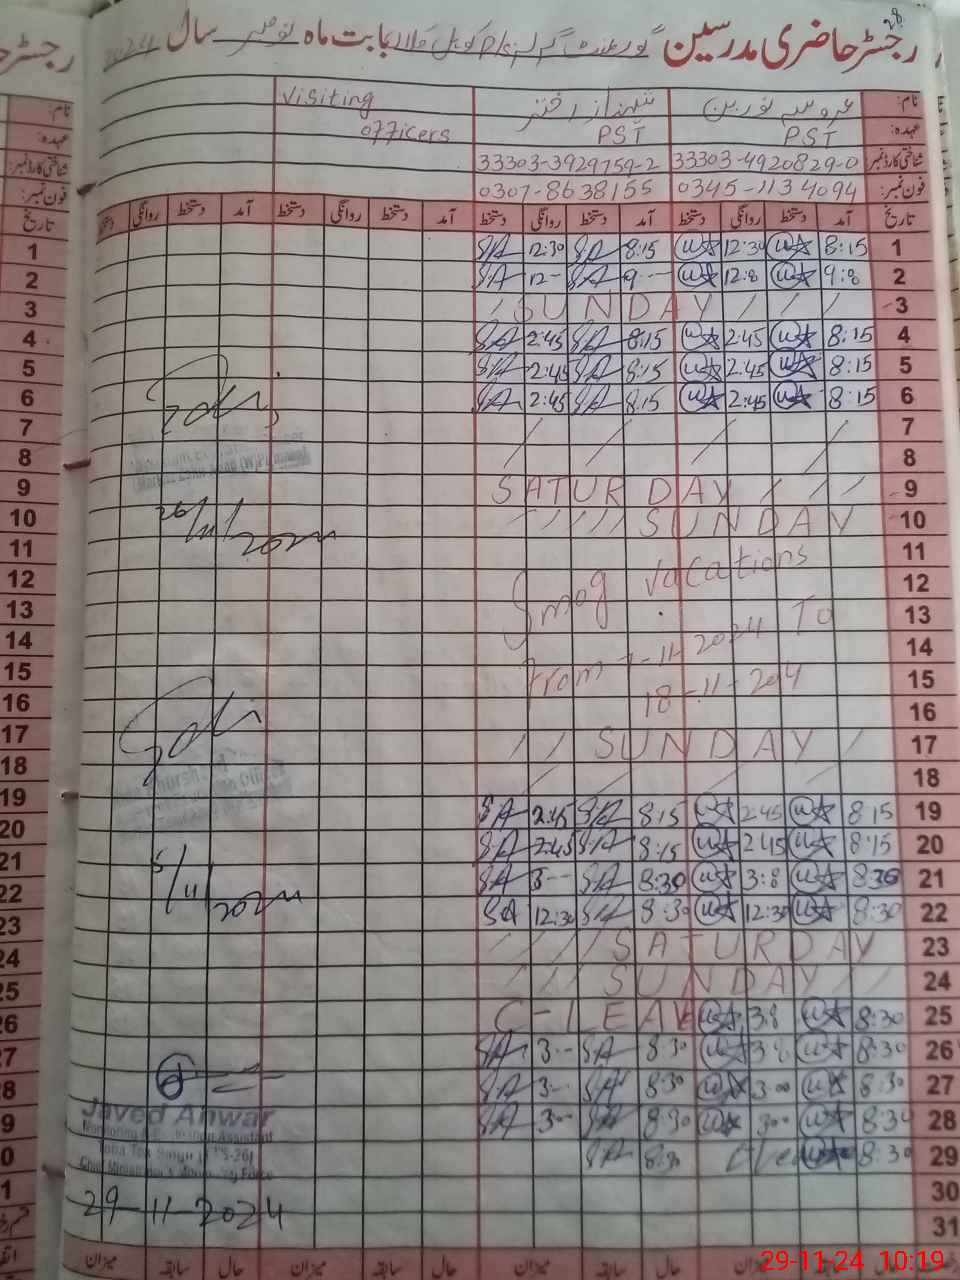 رجسٹر حاضری مدرسین گورنمنٹ بابت ماہ نومبر سال 2024
28
نام: عروسہ نورین شہناز اختر Visiting
عہدہ: PST PST officers
شناختی کارڈ نمبر: 33303-4920829-0 33303-3929759-2
فون نمبر: 0345-1134094 0307-8638155
تاریخ آمد دستخط روانگی دستخط آمد دستخط روانگی دستخط آمد دستخط روانگی دستخط آمد دستخط روانگی دستخط
1 8:15 12:30 8:15 SA 12:30 SA
2 9:8 12:8 9 SA 12 SA
3 SUNDAY
4 8:15 2:45 8:15 SA 2:45 SA
5 8:15 2:45 8:15 SA 2:45 SA
6 8:15 2:45 8:15 SA 2:45 SA
7
8
9 SATURDAY
10 SUNDAY
26/11/2024
11 Smog Vacations
12
13
14 From 7-11-2024 To
15 18-11-204
16
17 SUNDAY
18
19 8:15 2:45 8:15 SA 2:45 SA
20 8:15 2:45 8:15 SA 2:45 SA
21 8:30 3:8 8:30 SA 3 SA
22 8:30 12:30 8:30 SA 12:30 SA
5/11/2024
23 SATURDAY
24 SUNDAY
25 8:30 3:8 C-LEAVE
26 8:30 3:8 8:30 SA 3 SA
27 8:30 3:00 8:30 SA 3 SA
28 8:30 3:00 8:30 SA 3 SA
29 8:30 8:30 SA
Javed Anwar
Assistant
Toba Tek Singh
Force
29-11-2024
30
31
حال سابقہ میزان حال سابقہ میزان حال سابقہ میزان
29-11-24 10:19